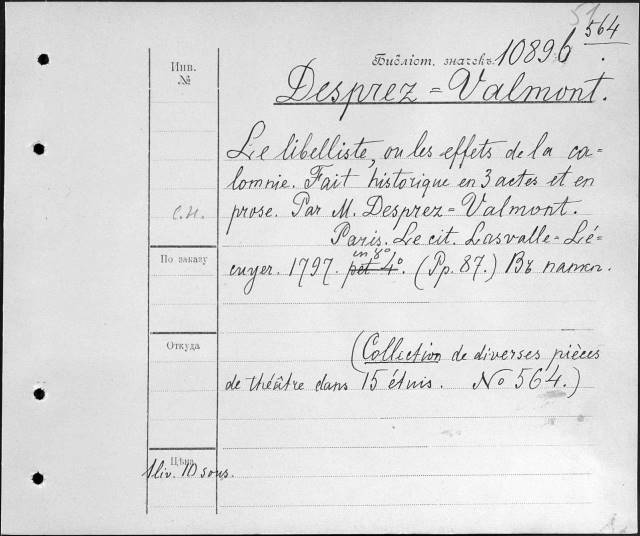 564
Инв.
№
Библіот. значекъ 10896
Desprez=Valmont.
Le libelliste, ou les effets de la ca=
lomnie. Fait historique en 3 actes et en
prose. Par M. Desprez=Valmont.
Paris. Le cit. Lasvalle=Lé=
en 8º
cuyer. 1797. pet 4º. (Pp. 87.) Въ папкѣ.
По заказу
Откуда
(Collection de diverses pièces
de théâtre dans 15 étuis. No 564.)
Цѣна
1 liv. 10 sous.